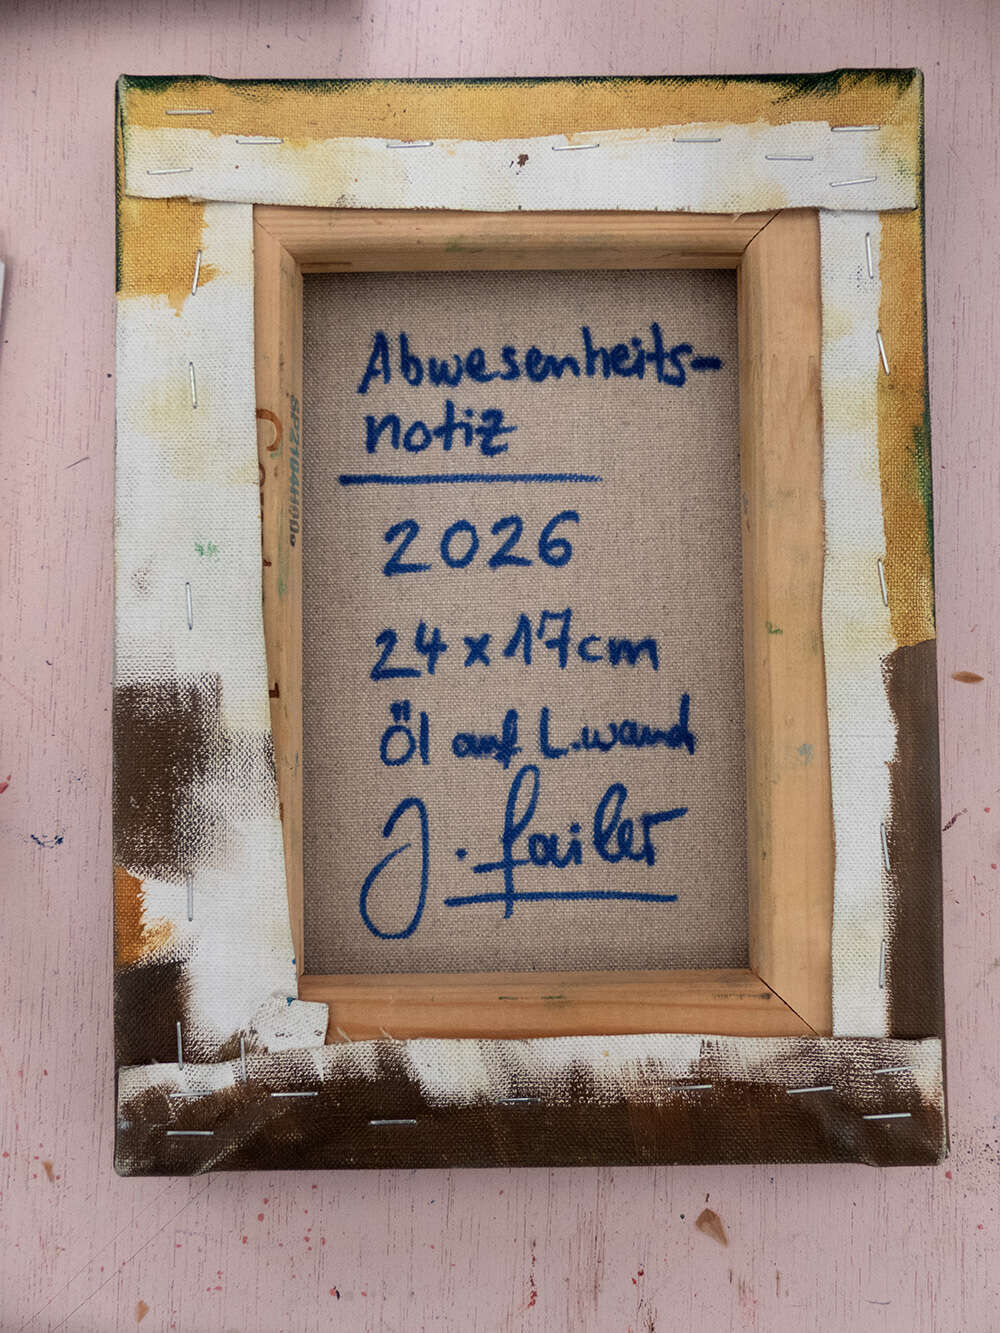 Abwesenheits-
notiz
2026
24 x 17 cm
Öl auf L.wand
J. Failer